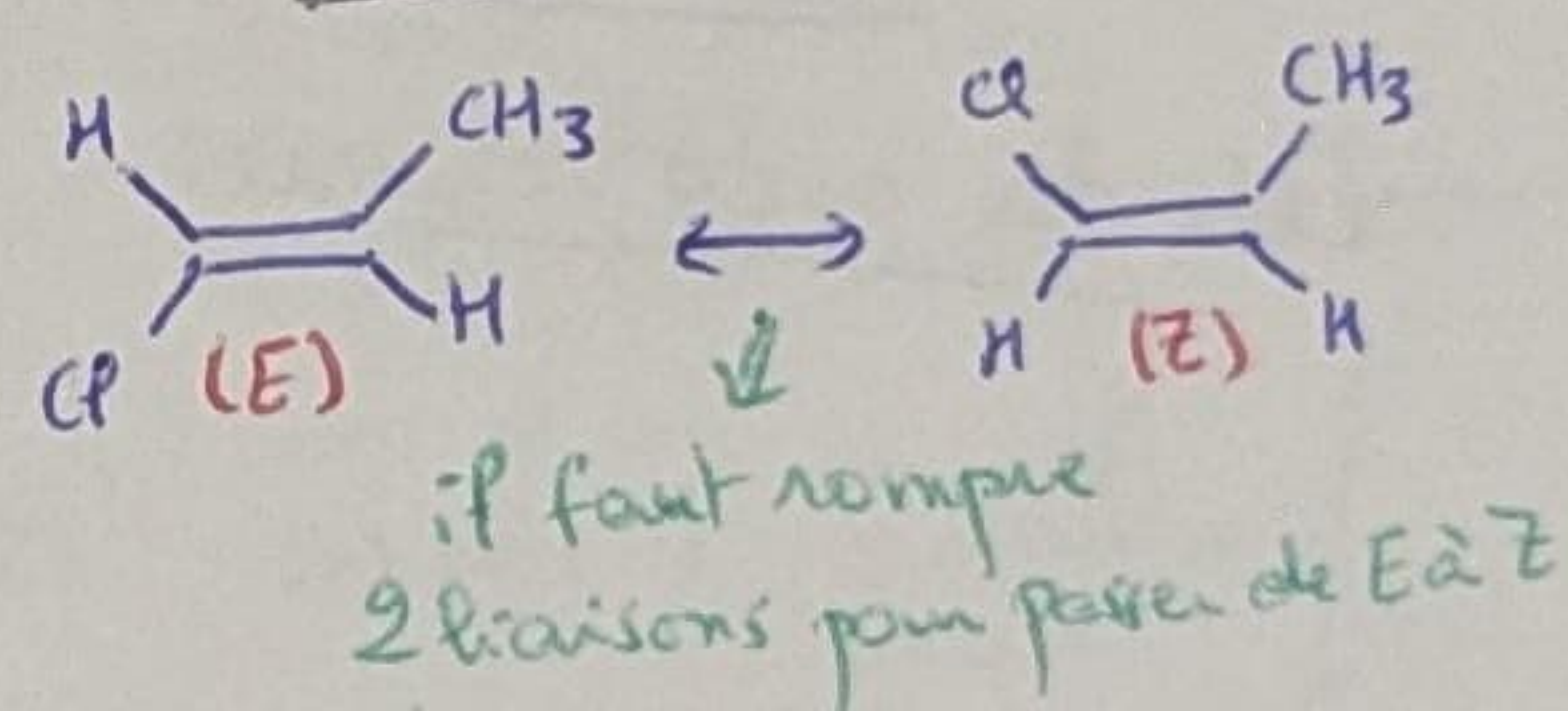 H CH3 Cl CH3
Cl (E) H H (Z) H
il faut rompre
2 liaisons pour passer de E à Z